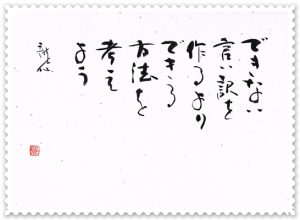 できない
言い訳を
作るより
できる
方法を
考え
よう